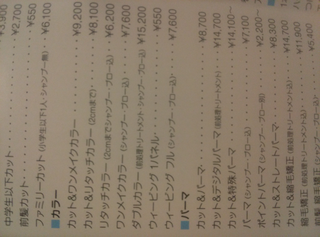 ¥3,900
中学生以下カット ¥2,700
前髪カット ¥550
ファミリーカット (小学生以下1人・シャンプー無) ¥6,100
■カラー
カット&ワンメイクカラー ¥9,200
カット&リタッチカラー (2cmまで) ¥8,100
リタッチカラー (2cmまで シャンプー・ブロー込) ¥6,200
ワンメイクカラー (シャンプー・ブロー込) ¥7,600
ダブルカラー (前処理トリートメント シャンプー・ブロー込) ¥15,200
ウィービング 1パネル ¥550
ウィービング フル (シャンプー・ブロー込) ¥7,600
■パーマ
カット&パーマ ¥8,700
カット&デジタルパーマ (前処理トリートメント込) ¥14,700
カット&特殊パーマ ¥14,100~
パーマ (シャンプー・ブロー込) ¥7,100
ポイントパーマ (シャンプー・ブロー無) ¥2,200~
カット&ストレートパーマ ¥8,300
カット&縮毛矯正 (前処理トリートメント込) ¥14,700
縮毛矯正 (前処理トリートメント込) ¥11,900
前髪 縮毛矯正 ¥5,400